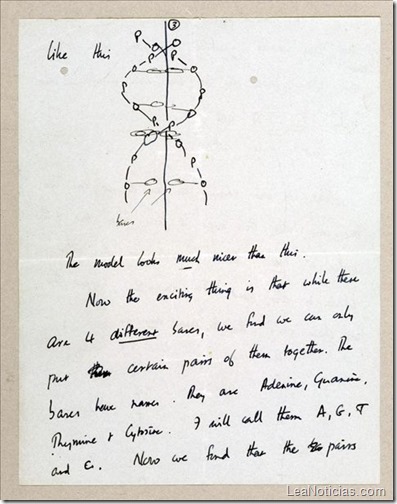 like this
3
P P
P P
P P
P P
bases
The model looks much nicer than this.
Now the exciting thing is that while there
are 4 different bases, we find we can only
put certain pairs of them together. The
bases have names. They are Adenine, Guanine,
Thymine & Cytosine. I will call them A, G, T
and C. Now we find that the pairs
LeaNoticias.com